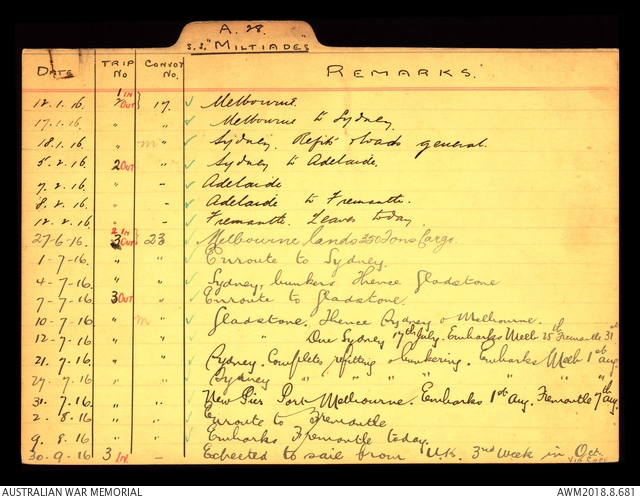 A. 28.
S.S. "MILTIADES"
DATE TRIP No CONVOY No. REMARKS.
12.1.16. 1 IN 2 OUT } 17. ✓ Melbourne.
17.1.16. " " ✓ Melbourne to Sydney.
18.1.16. " m " ✓ Sydney. Refits & loads general.
5.2.16. 2 OUT " ✓ Sydney to Adelaide.
7.2.16. " - ✓ Adelaide
8.2.16. " - ✓ Adelaide to Fremantle.
12.2.16. " - ✓ Fremantle. Leaves today.
27-6-16. 2 IN 3 OUT } 23 ✓ Melbourne lands 350 Tons Cargo.
1-7-16. " " ✓ Enroute to Sydney.
4-7-16. " " ✓ Sydney, bunkers thence Gladstone
7-7-16. 3 OUT " ✓ Enroute to Gladstone.
10-7-16. " m ✓ Gladstone. Thence Sydney & Melbourne.
12-7-16. " " ✓ " Due Sydney 17th July. Embarks Melb 25th Fremantle 31st
21.7.16 " " ✓ Sydney. Completes refitting & bunkering. Embarks Melb 1st Aug.
27.7.16 " " ✓ Sydney " " " " " "
31.7.16 " " ✓ New Pier Port Melbourne. Embarks 1st Aug. Fremantle 7th Aug.
2.8.16 " " ✓ Enroute to Fremantle
9.8.16 " " ✓ Embarks Fremantle today.
30.9.16 3 IN. - ✓ Expected to sail from U.K. 3rd week in Oct. VIA CAPE
AUSTRALIAN WAR MEMORIAL AWM2018.8.681